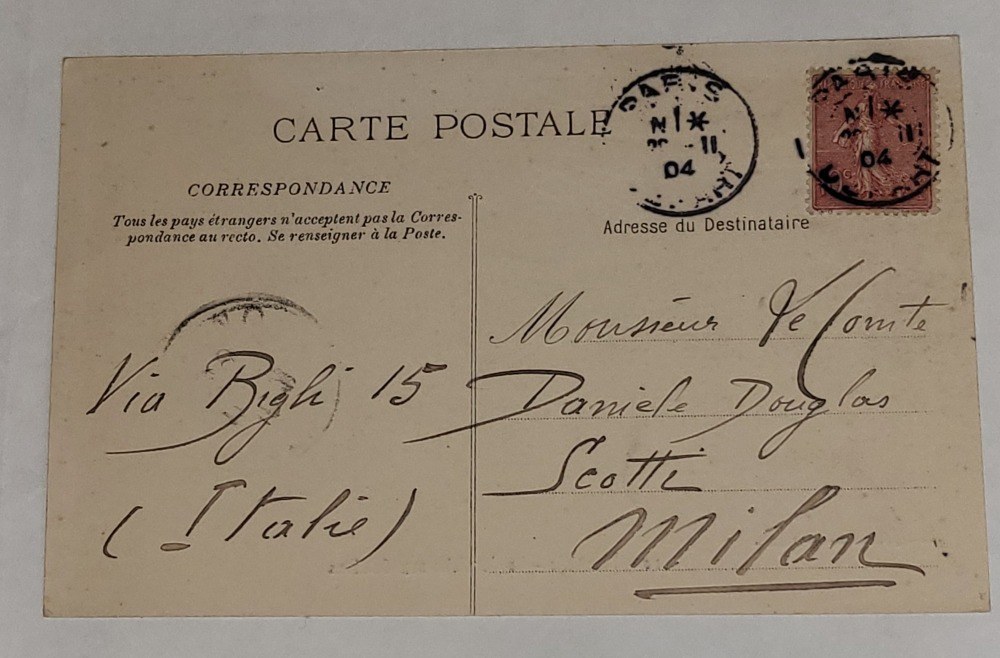 CARTE POSTALE
CORRESPONDANCE
Tous les pays étrangers n'acceptent pas la Corres-
pondance au recto. Se renseigner à la Poste.
PARIS
11
04
PARIS
11
04
Adresse du Destinataire
Monsieur Le Comte
Daniele Douglas
Scotti
Milan
Via Bigli 15
(Italie)